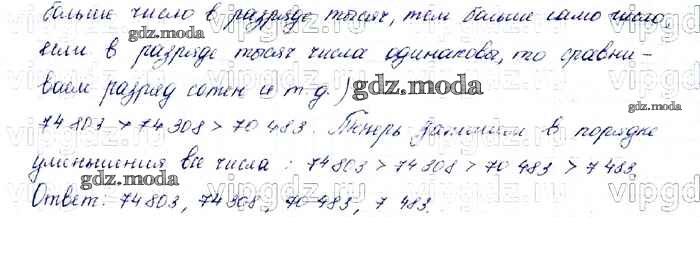 больше число в разряде тысяч, тем больше само число,
если в разряде тысяч числа одинаковы, то сравни-
ваем разряд сотен и т.д.)
gdz.moda
gdz.moda
74 803 > 74 308 > 70 483. Теперь запишем в порядке
уменьшения все числа : 74 803 > 74 308 > 70 483 > 7 483.
gdz.moda
Ответ: 74 803, 74 308, 70 483, 7 483.